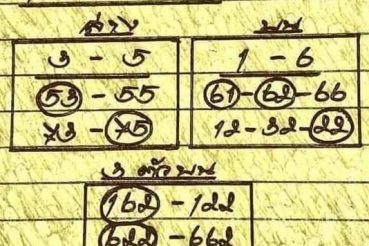 ล่าง
3 - 5
53 - 55
73 - 75
บน
1 - 6
61 - 62 - 66
12 - 32 - 22
3 ตัวบน
162 - 122
622 - 662